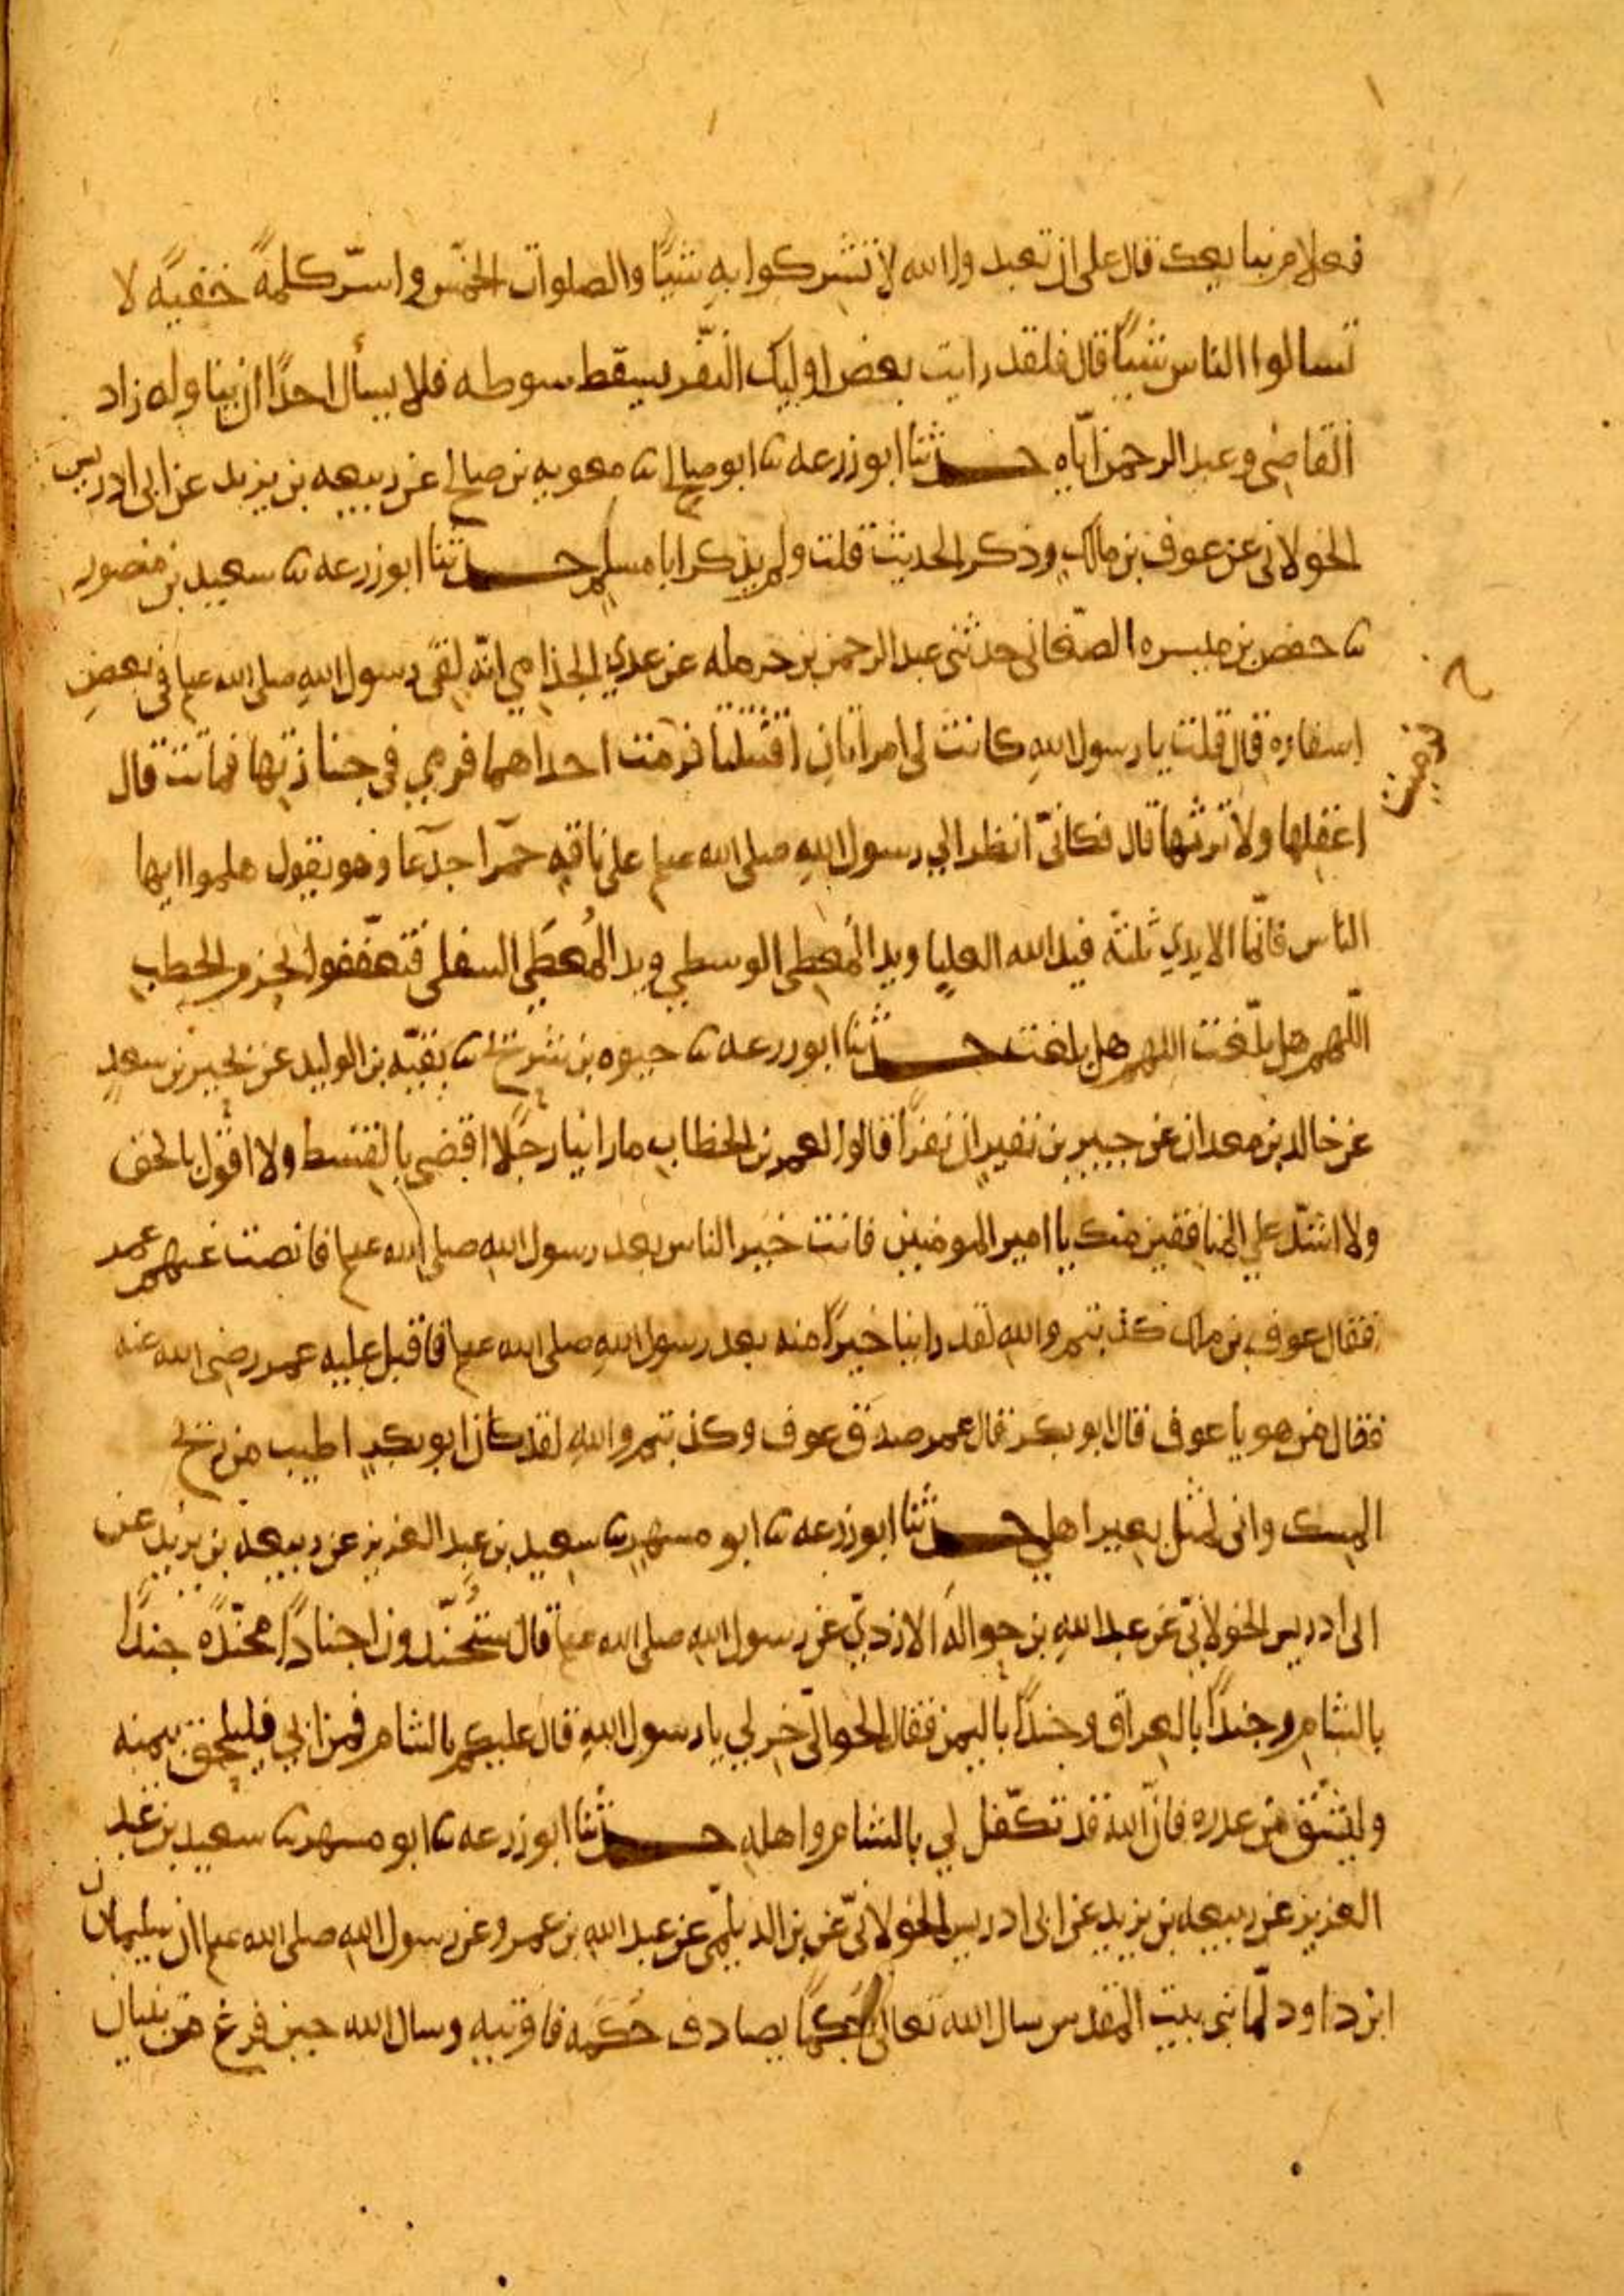 فعلام نبايعك قال على ان تعبدوا الله لا تشركوا به شيًا والصلوات الخمس واسرّ كلمةً خفيةً لا
تسالوا الناس شيًا قال فلقد رايت بعض اوليك النفر يسقط سوطه فلا يسأل احدًا ان يناوله زاد
القاضي وعبد الرحمن اياه حدثنا ابو زرعه ثنا ابو صالح ثنا معويه بن صالح عن ربيعه بن يزيد عن ابى ادريس
الخولانى عن عوف بن مالك وذكر الحديث قلت ولم يذكر ابا مسلم حدثنا ابو زرعه ثنا سعيد بن منصور
ثنا حفص بن ميسره الصنعانى حدثنى عبد الرحمن بن حرمله عن عدي الجذامي انّه لقى رسول الله صلى الله عم فى بعض
اسفاره قال قلت يا رسول الله كانت لى امراتان اقتتلتا فرمت احداهما فرمي فى جنازتها فماتت قال
اعقلها ولا ترثها قال فكانّي انظر الي رسول الله صلى الله عم على ناقه حمرا جدعا وهو يقول هلموا ايها
الناس فانّما الايدي ثلثه فيد الله العليا ويد المُعطِي الوسطي ويد المُعطَي السفلى فتعففوا بحزم الحطب
اللّهم هل بلّغت اللهم هل بلغت حدثنا ابو زرعه ثنا حيوه بن شريح ثنا بقيّه بن الوليد عن بحير بن سعد
عن خالد بن معدان عن جبير بن نفير ان نفرًا قالوا لعمر بن الخطاب ما راينا رجلًا اقضى بالقسط ولا اقول بالحق
ولا اشدّ علي المنافقين منك يا امير المومنين فانت خير الناس بعد رسول الله صلى الله عم فانصت عنهم عمر
فقال عوف بن مالك كذبتم والله لقد راينا خيرًا منه بعد رسول الله صلى الله عم فاقبل عليه عمر رضى الله عنه
فقال من هو يا عوف قال ابو بكر فقال عمر صدق عوف وكذبتم والله لقد كان ابو بكر اطيب من ريح
المسك وانى لمثل بعير اهلي حدثنا ابو زرعه ثنا ابو مسهر ثنا سعيد بن عبد العزيز عن ربيعه بن يزيد عن
ابى ادريس الخولانيّ عن عبد الله بن حواله الازديّ عن رسول الله صلى الله عم قال ستُجنّدون اجنادًا مجنّده جندًا
بالشام وجندًا بالعراق وجندًا باليمن فقال الحواليّ خر لي يا رسول الله قال عليكم بالشام فمن ابي فليلحق بيمنه
وليستق من غدره فانّ الله قد تكفّل لي بالشام واهله حدثنا ابو زرعه ثنا ابو مسهر ثنا سعيد بن عبد
العزيز عن ربيعه بن يزيد عن ابى ادريس الخولانيّ عن بن الديلميّ عن عبد الله بن عمرو عن رسول الله صلى الله عم ان سليمان
ابن داود لمّا بنى بيت المقدس سال الله تعالى حُكمًا يصادف حُكمَه فاوتيه وسال الله حين فرغ من بنيان